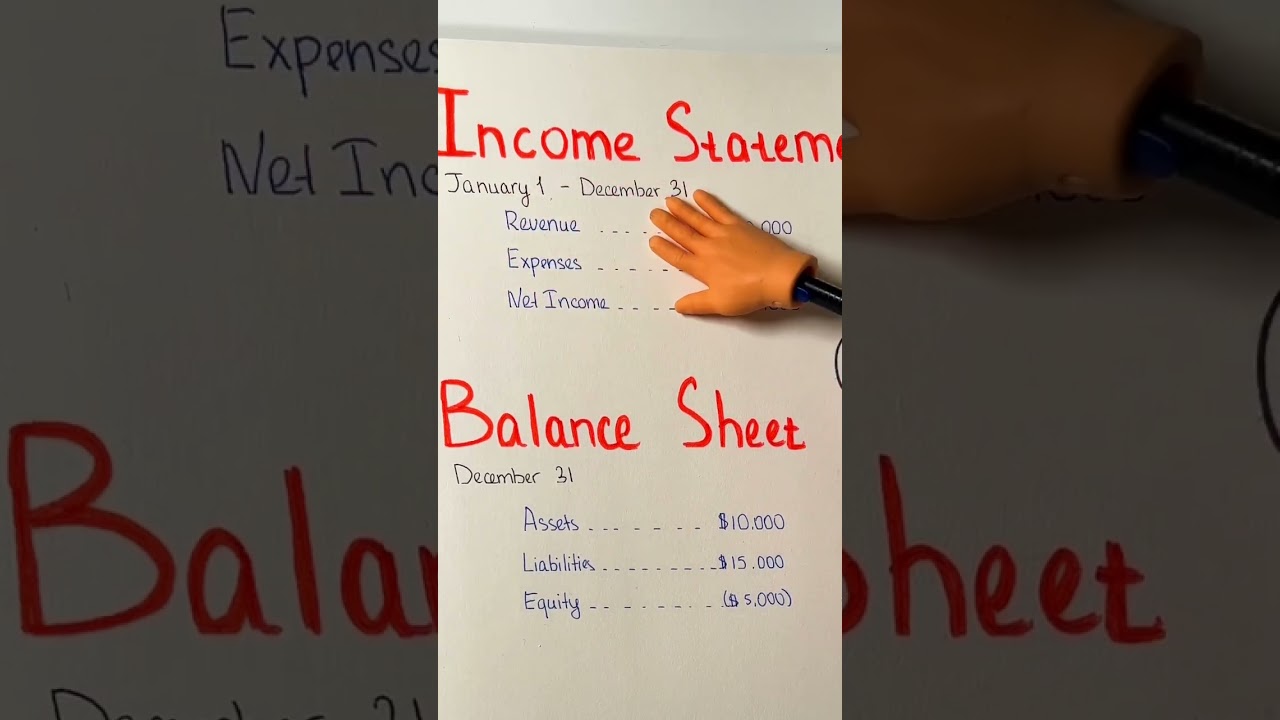 Income Stateme
January 1 - December 31
Revenue ......000
Expenses
Net Income
Balance Sheet
December 31
Assets ....... $10.000
Liabilities ......... $15.000
Equity ........ ($5,000)